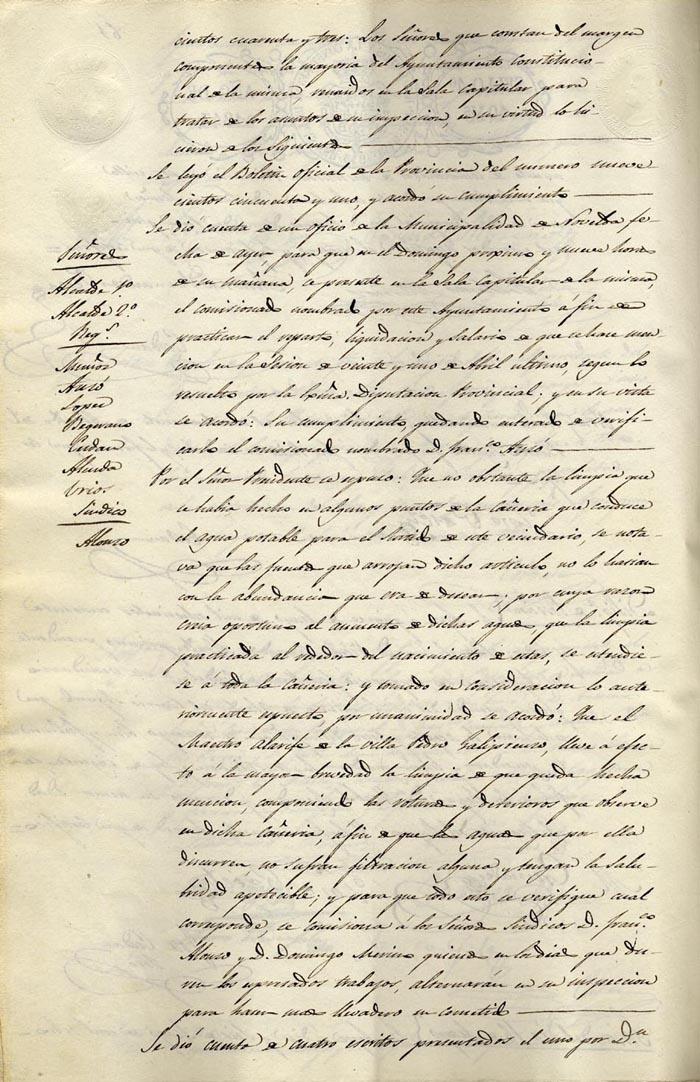 cientos cuarenta y tres: Los Señores que constan del margen
componentes la mayoria del Ayuntamiento constitucio-
nal de la misma, reunidos en la Sala Capitular para
tratar de los asuntos de su inspeccion, en su virtud lo hi-
cieron de los Siguientes
Se leyó el Boletin oficial de la Provincia del numero nueve
cientos cincuenta y uno, y acordó su cumplimiento
Se dió cuenta de un oficio de la Municipalidad de Novelda fe-
cha de ayer, para que en el Domingo proximo y nueve horas
de su mañana, se presente en la Sala Capitular de la misma,
el comisionado nombrado por este Ayuntamiento á fin de
practicar el reparto, liquidacion y salario de que se hace men-
cion en la Sesion de veinte y uno de Abril ultimo, segun lo
resuelto por la Exma. Diputacion Provincial; y en su vista
se acordó: Su cumplimiento quedando enterado de verifi-
carlo el comisionado nombrado D. Fran.co Azró
Señores
Alcalde 1º
Alcalde 2º
Reg.s
Azró
Lopez
Begerano
Alenda
Urios
Sindico
Alonzo
Por el Señor Presidente se espuso: Que no obstante la limpia que
se habia hecho en algunos puntos de la Cañeria que conduce
el agua potable para el surtido de este vecindario, se nota-
va que las fuentes que arrojan dicho articulo, no lo hacian
con la abundancia que era de desear; por cuya razon
creia oportuno al aumento de dichas aguas, que la limpia
practicada al rededor del nacimiento de estas, se estendie-
se á toda la Cañeria: y tomado en consideracion lo ante-
riormente espuesto, por unanimidad se acordó: Que el
Maestro Alarife de la villa Pedro Galipienzo, lleve á efec-
to á la mayor brevedad la limpia de que queda hecha
mencion, componiendo las roturas y deterioros que observe
en dicha Cañeria, á fin de que las aguas que por ella
discurren, no sufran filtracion alguna y tengan la salu-
bridad apetecible; y para que todo esto se verifique cual
corresponde, se comisiona á los Señores Sindicos D. Fran.co
Alonzo y D. Domingo Merino quienes en los dias que du-
ren los espresados trabajos, alternarán en su inspeccion
para hacer mas llevadero su cometido
Se dió cuenta de cuatro escritos presentados el uno por D.n